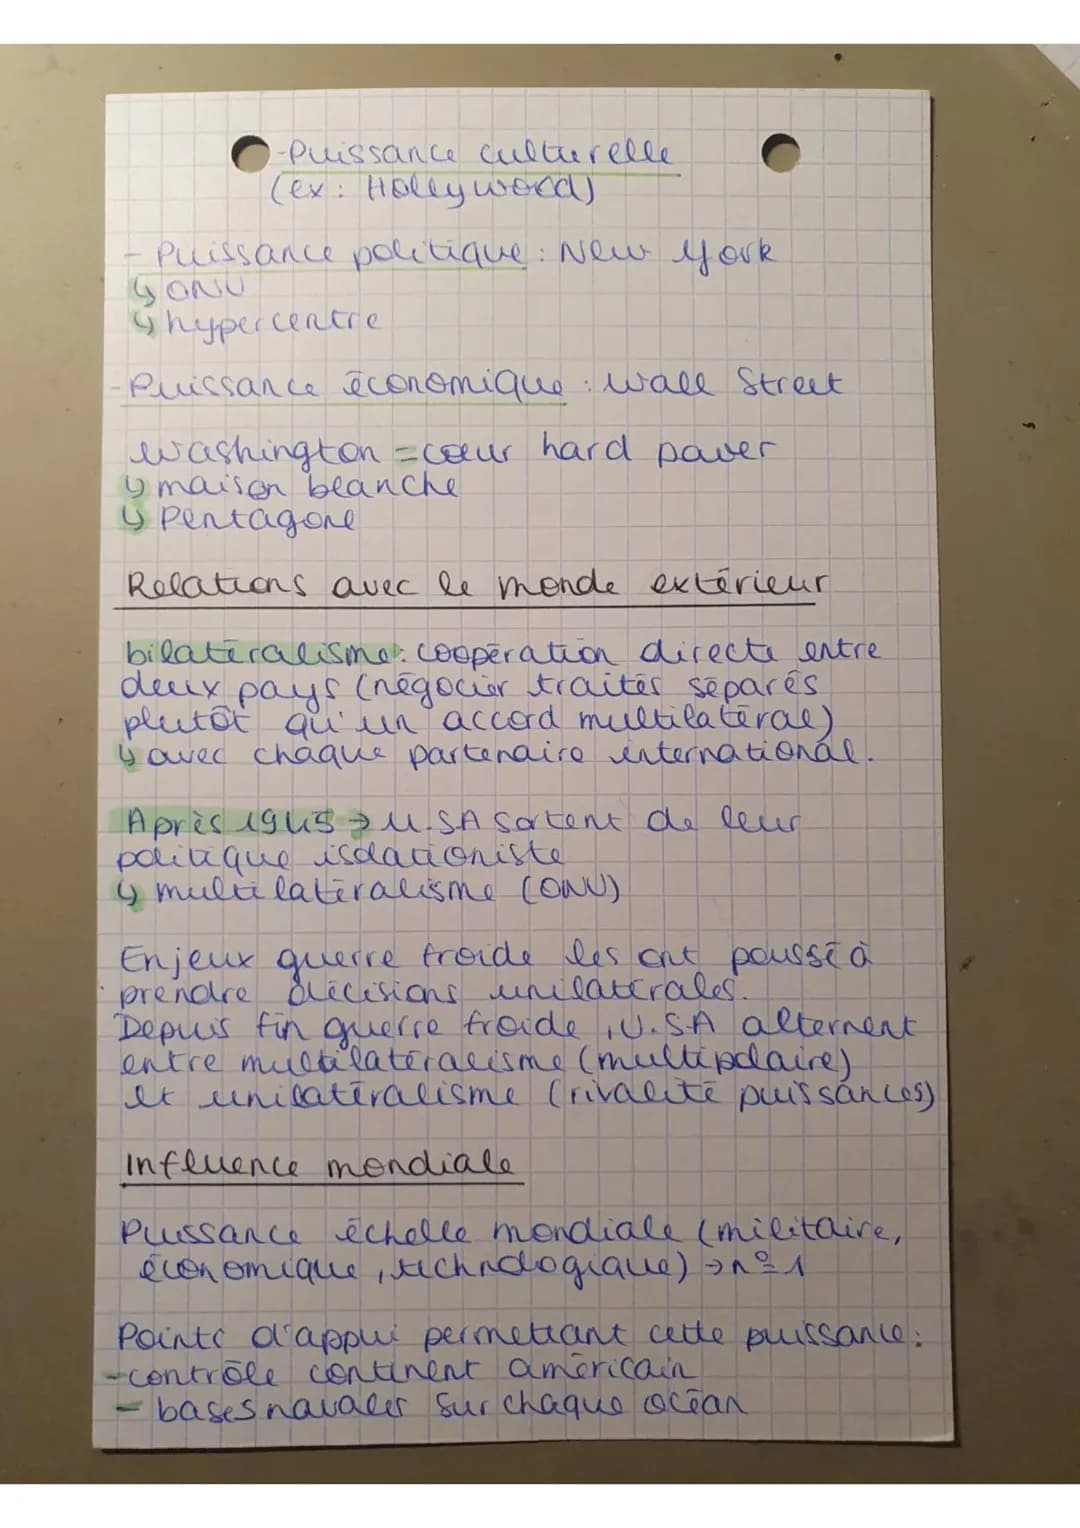 -Puissance culturelle
(ex: Hollywood)
- Puissance politique : New York
↳ ONU
↳ hypercentre
-Puissance économique : Wall Street
Washington = cœur hard power
↳ maison blanche
↳ Pentagone
Relations avec le monde extérieur
bilatéralisme: coopération directe entre
deux pays (négocier traités séparés
plutôt qu'un accord multilatéral)
↳ avec chaque partenaire international.
Après 1945 → U.SA sortent de leur
politique isolationiste
↳ multilatéralisme (ONU)
Enjeux guerre froide les ont poussé à
prendre décisions unilatérales.
Depuis fin guerre froide, U.S.A alternent
entre multilatéralisme (multipolaire)
et unilatéralisme (rivalité puissances)
Influence mondiale
Puissance échelle mondiale (militaire,
économique, technologique) → nº1
Points d'appui permettant cette puissance:
-contrôle continent américain
- bases navales sur chaque océan